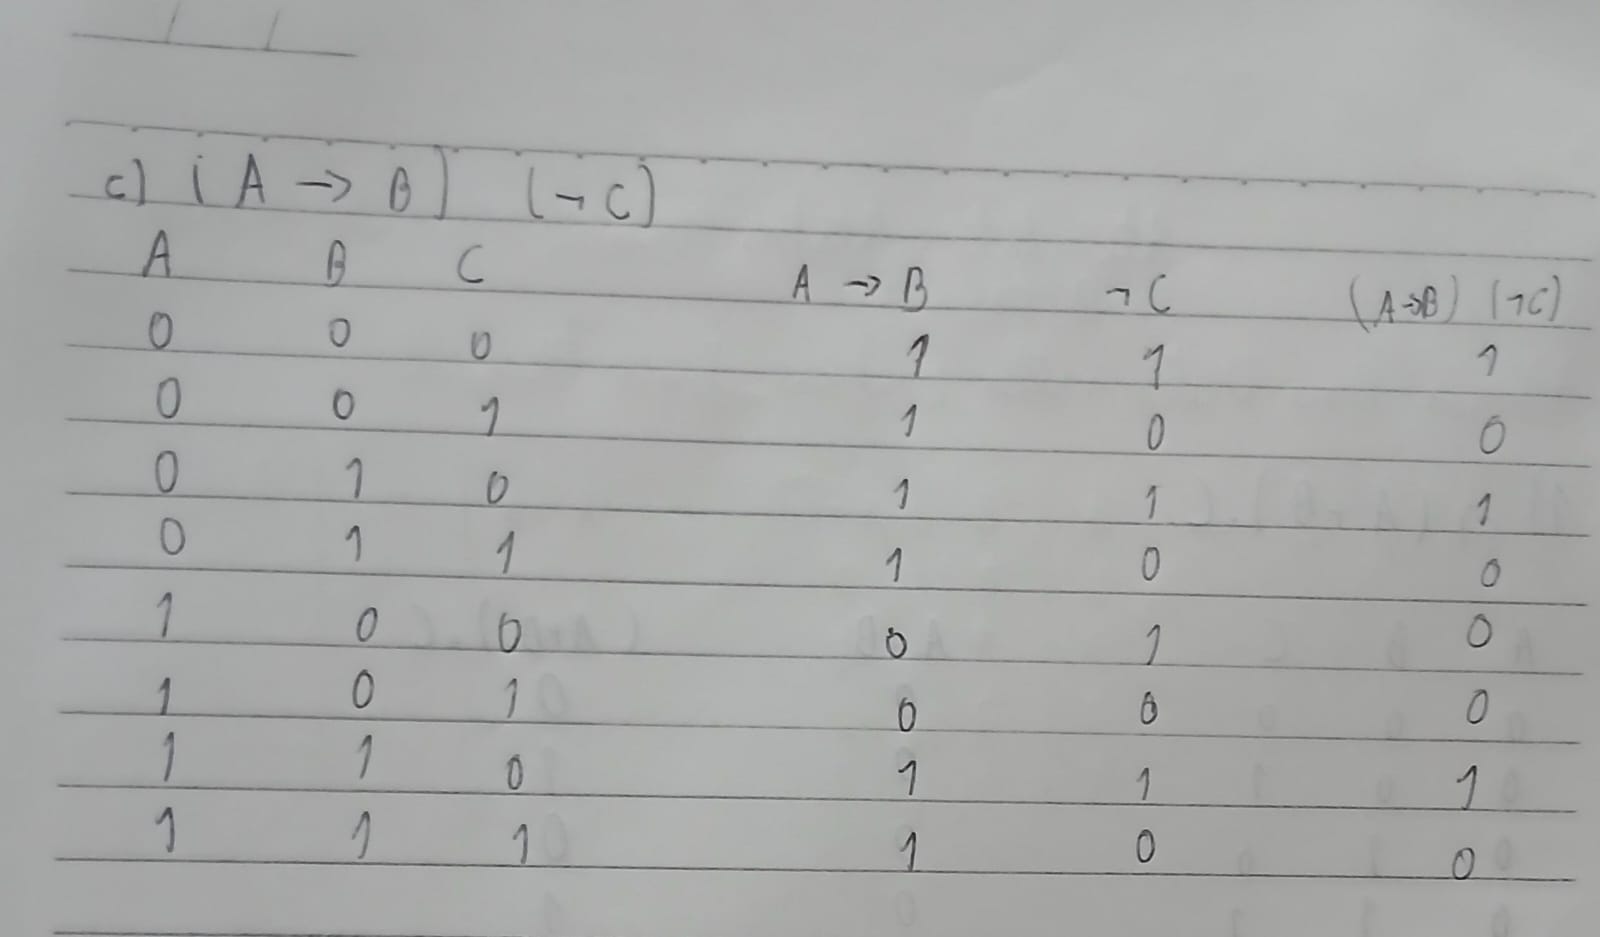 c) (A → B) (¬C)
A B C A → B ¬C (A→B) (¬C)
0 0 0 1 1 1
0 0 1 1 0 0
0 1 0 1 1 1
0 1 1 1 0 0
1 0 0 0 1 0
1 0 1 0 0 0
1 1 0 1 1 1
1 1 1 1 0 0